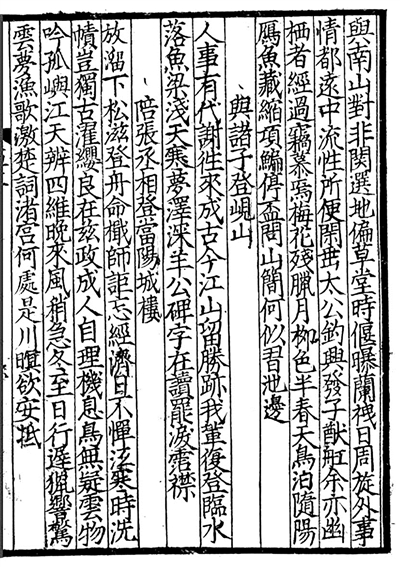 與南山對非関選地偏草堂時偃曝蘭栧日周旋外事
情都遠中流性所便閑垂太公釣興發子猷舡余亦幽
栖者經過竊慕焉梅花殘臘月柳色半春天鳥泊隨陽
鴈魚藏縮項鯿停盃問山簡何似習池邊
與諸子登峴山
人事有代謝徃來成古今江山留勝跡我輩復登臨水
落魚梁淺天寒夢澤深羊公碑字在讀罷淚霑襟
陪張丞相登當陽城樓
放溜下松滋登舟命檝師詎忘經濟日不憚沍寒時洗
幘豈獨古濯纓良在玆政成人自理機息鳥無疑雲物
吟孤嶼江天辨四維晚來風稍急冬至日行遲獵響驚
雲夢漁歌激楚詞渚宮何處是川暝欲安抵